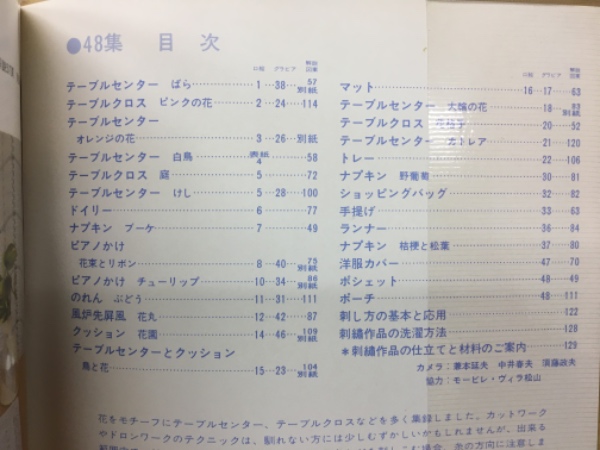 ●48集 目次
口絵 グラビア 解説図案
テーブルセンター ばら……1…38…57別紙
テーブルクロス ピンクの花……2…24…114
テーブルセンター
オレンジの花……3…26…別紙
テーブルセンター 白鳥……表紙4……58
テーブルクロス 庭……5……72
テーブルセンター けし……5…28…100
ドイリー……6……77
ナプキン ブーケ……7……49
ピアノかけ
花束とリボン……8…40…75別紙
ピアノかけ チューリップ……10…34…86別紙
のれん ぶどう……11…31…111
風炉先屏風 花丸……12…42…87
クッション 花園……14…46…109別紙
テーブルセンターとクッション
鳥と花……15…23…104別紙
口絵 グラビア 解説図案
マット……16…17…63
テーブルセンター 大輪の花……18…83別紙
テーブルクロス……20…52
テーブルセンター カトレア……21…120
トレー……22…106
ナプキン 野葡萄……30…81
ショッピングバッグ……32…82
手提げ……33…63
ランナー……36…84
ナプキン 桔梗と松葉……37…80
洋服カバー……47…70
ポシェット……48…49
ポーチ……48…111
刺し方の基本と応用……122
刺繍作品の洗濯方法……128
*刺繍作品の仕立てと材料のご案内……129
カメラ：瀬本延夫 中井春夫 須藤政夫
協力：モービレ・ヴィラ松山
花をモチーフにテーブルセンター、テーブルクロスなどを多く集録しました。カットワーク
やドロンワークのテクニックは、馴れない方には少しむずかしいかもしれませんが、出来る